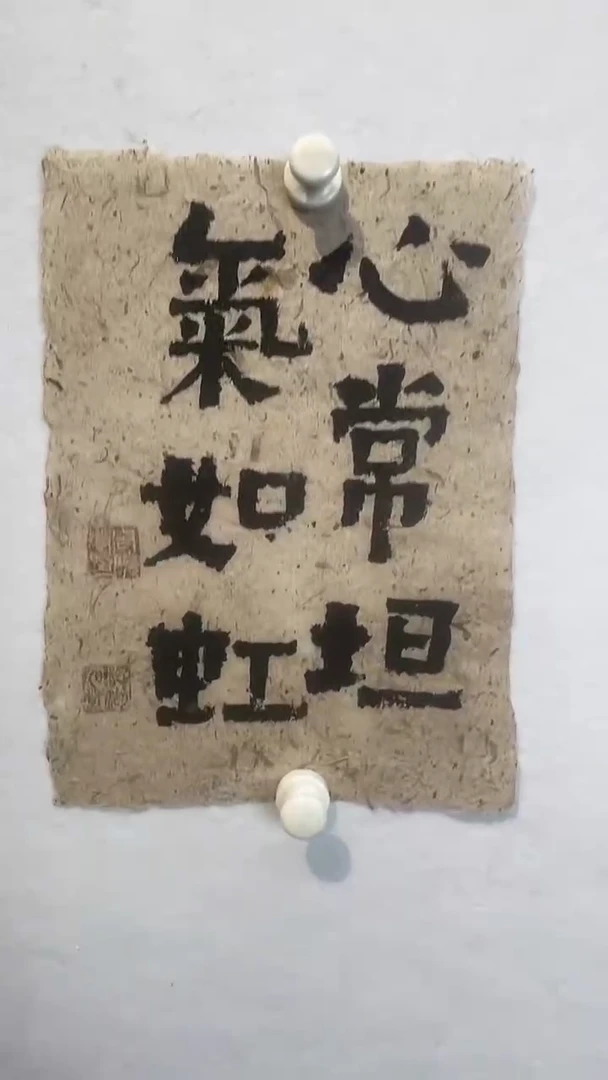 心常坦
氣如虹